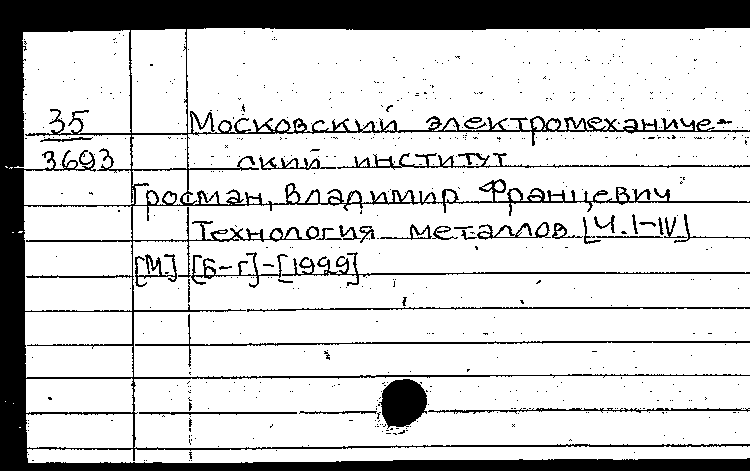 35 Московский электромеханиче-
3693 ский институт
Гросман, Владимир Францевич
Технология металлов [Ч.I-IV]
[М.] [Б-г]-[1929]